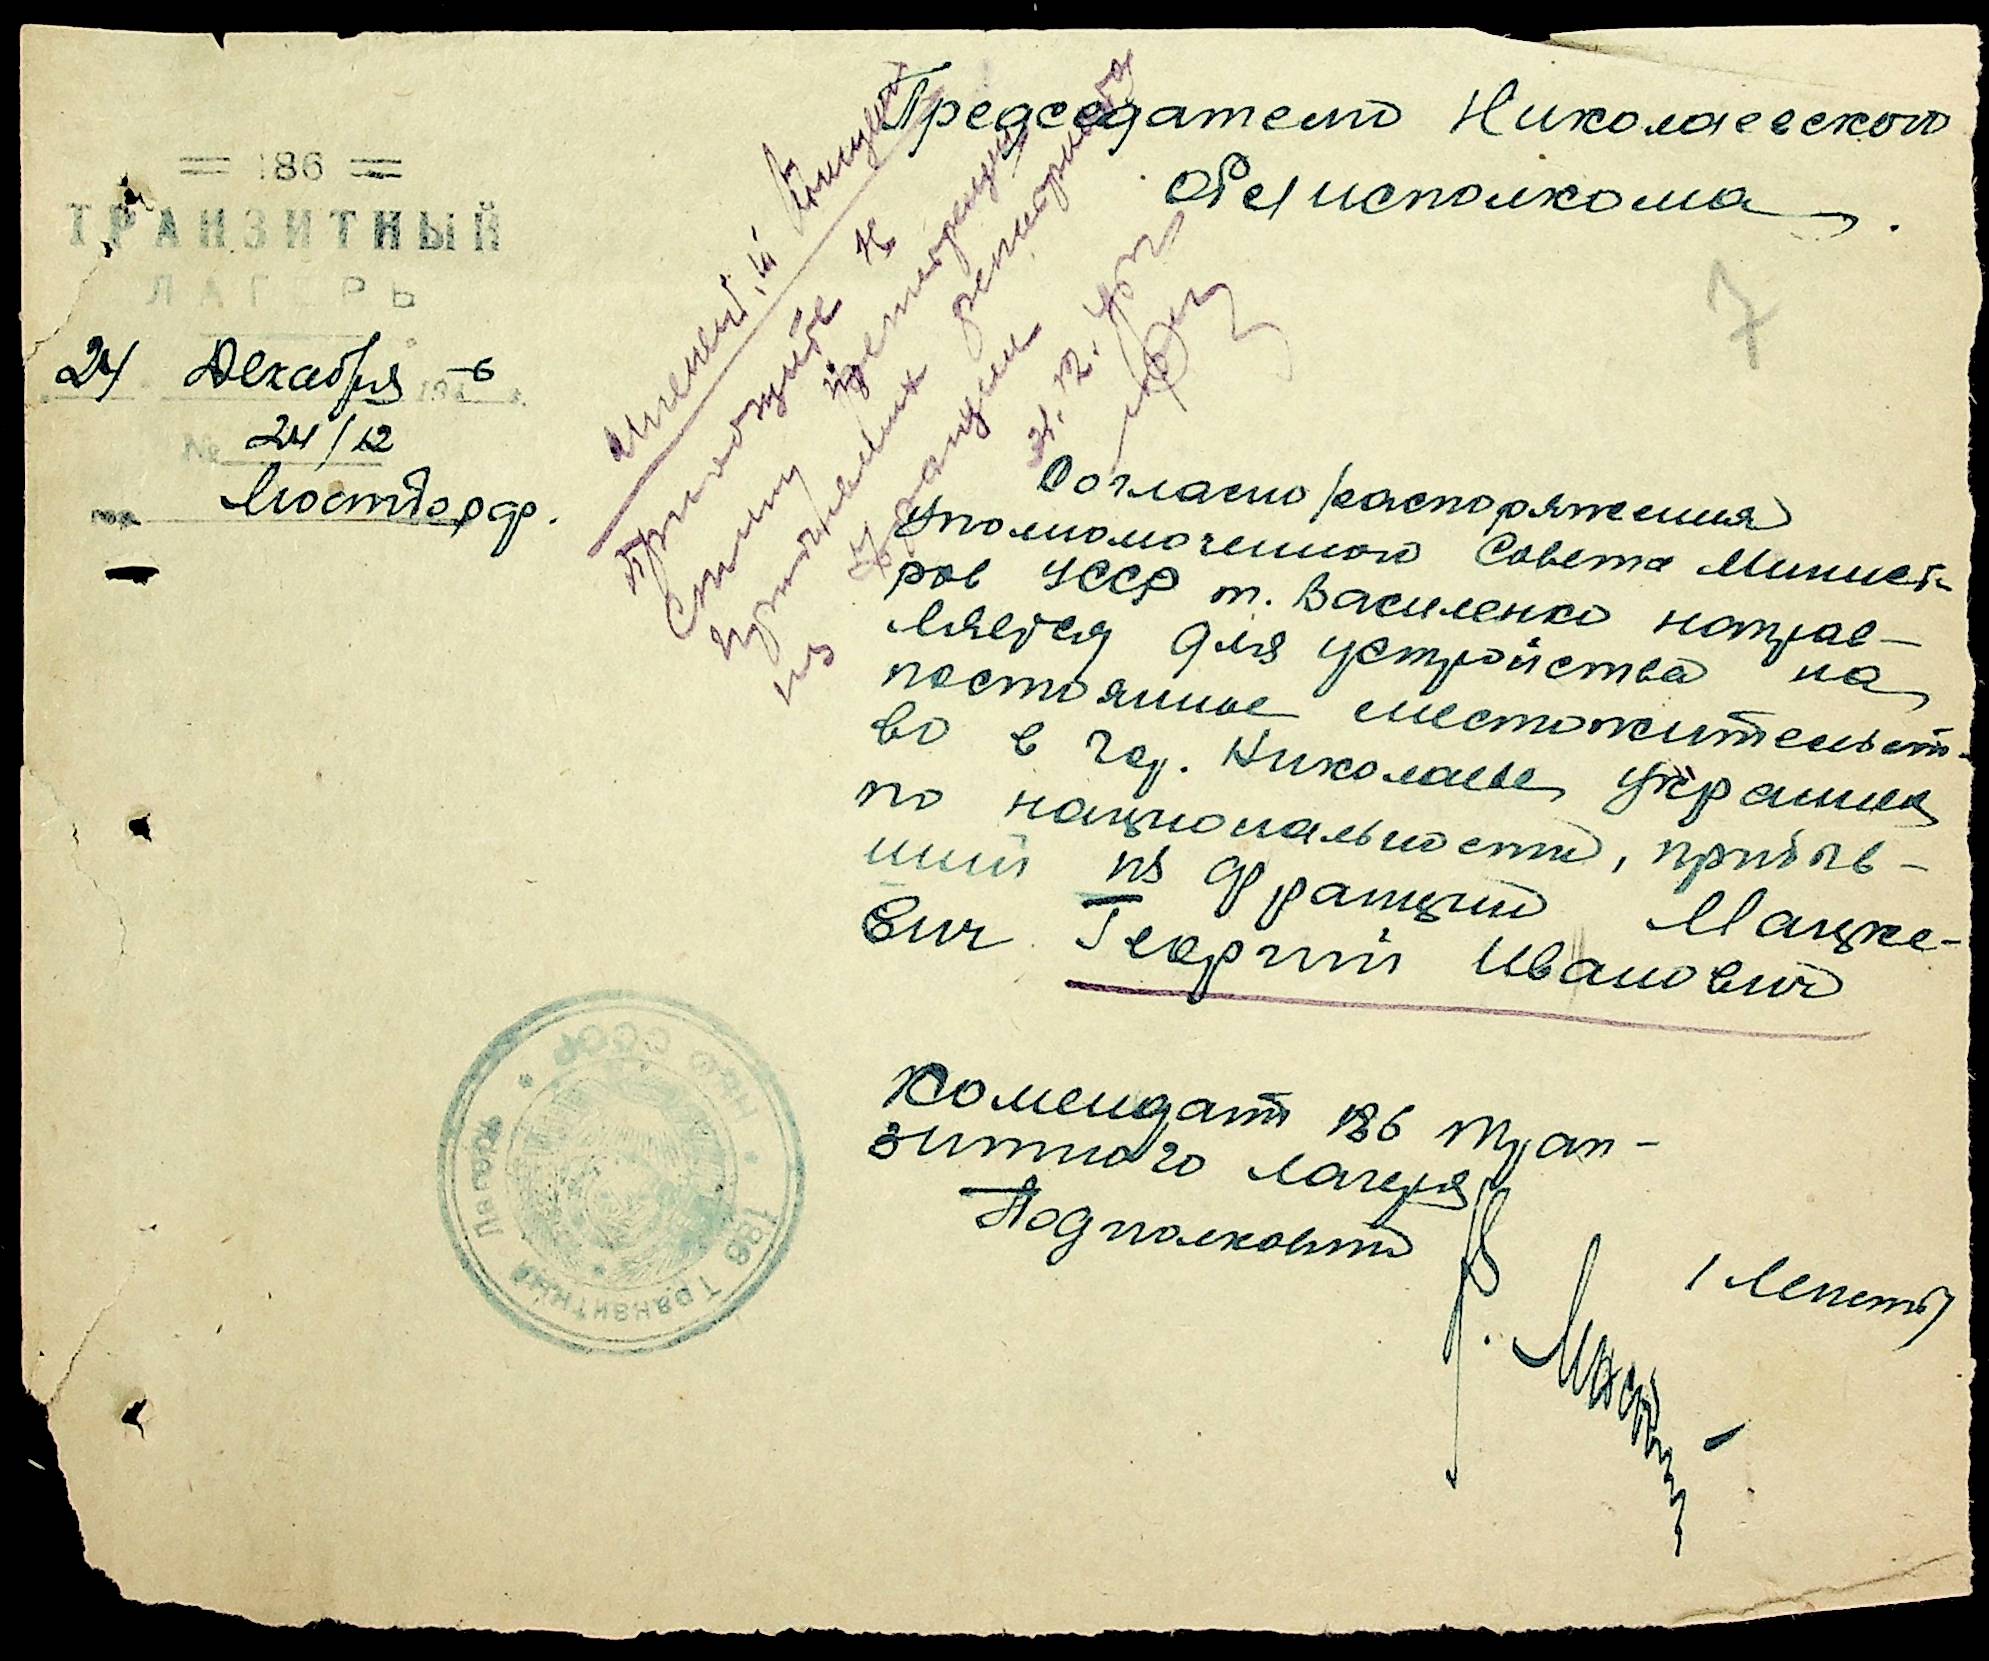 = 186 =
ТРАНЗИТНЫЙ
ЛАГЕРЬ
24 Декабря 194 6 г.
№ 24/12
Люстдорф.
Председателю Николаевского
облисполкома.
7
Приобщите к
списку
из Франции
31.12.
Согласно распоряжения
Уполномоченного Совета Минист-
ров УССР т. Василенко направ-
ляется для устройства на
постоянное местожительст-
во в гор. Николаеве, украинец
по национальности, прибыв-
ший из Франции Мацке-
вич Георгий Иванович
Комендант 186 тран-
зитного лагеря
Подполковник
НКО СССР * 186 Транзитный Лагерь *